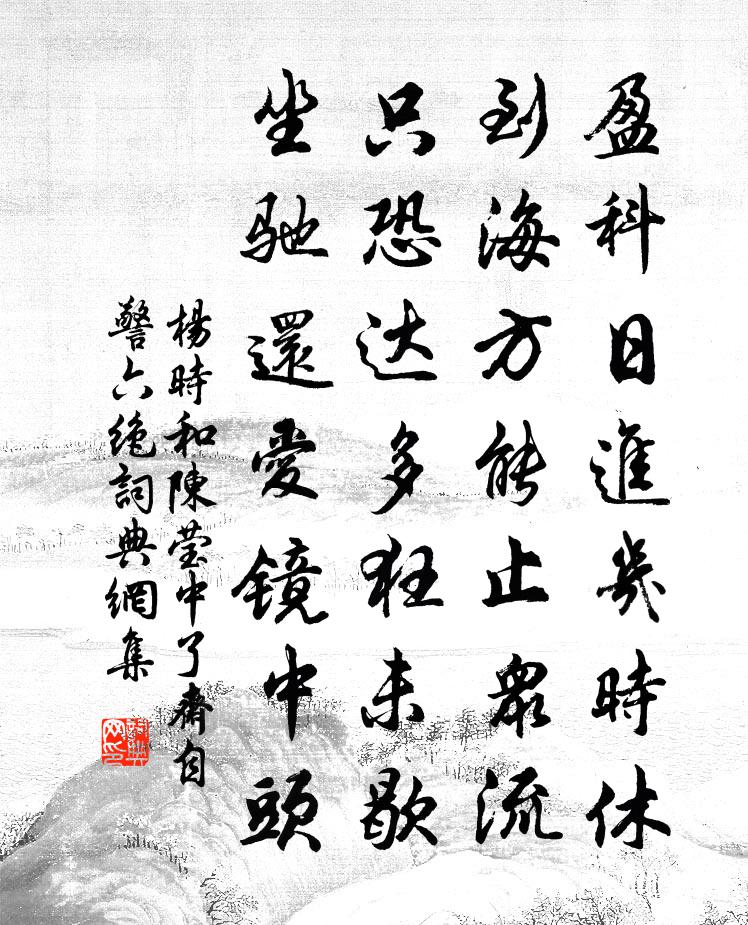 盈科日進幾時休
到海方能止眾流
只恐达多狂未歇
坐驰還愛镜中頭
楊時和陳莹中了齋自
警六绝詞典網集